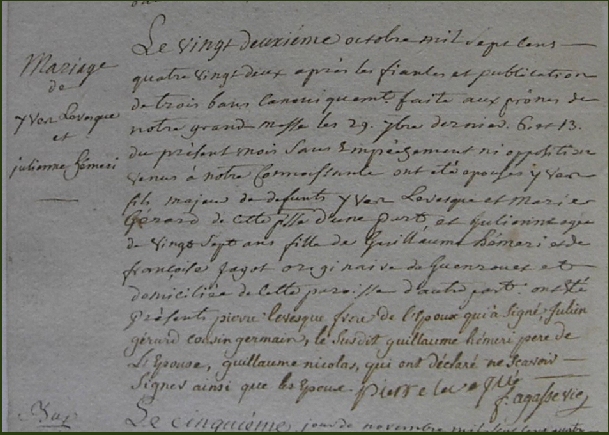 Mariage
de
yves Levesque
et
julienne hémeri
Le vingt deuxiéme octobre mil sept cens
quatre vingt deux après les fiances et publication
de trois bans canoniquemt. faite aux prônes de
notre grand messe les 29. 7bre dernier. 6 et 13.
du présent mois sans Empêchement ni opposition
venus à notre Connoissance ont été epousés yves
fils majeur de defunts yves Levesque et Marie
Gérard de cette psse d'une part et Julienne agée
de vingt sept ans fille de Guillaume hémeri et de
françoise Jagot originaire de Guenrouet et
domiciliée de cette paroisse d'autre part. ont été
présents pierre levesque frere de l'Epoux qui à signé, Julien
gérard cousin germain, le susdit guillaume hémeri pere de
L'Epouse, guillaume nicolas, qui ont déclaré ne scavoir
signer ainsi que les Epoux. pierre levesque
Le cinquiéme jour de novembre mil sept cens quatre